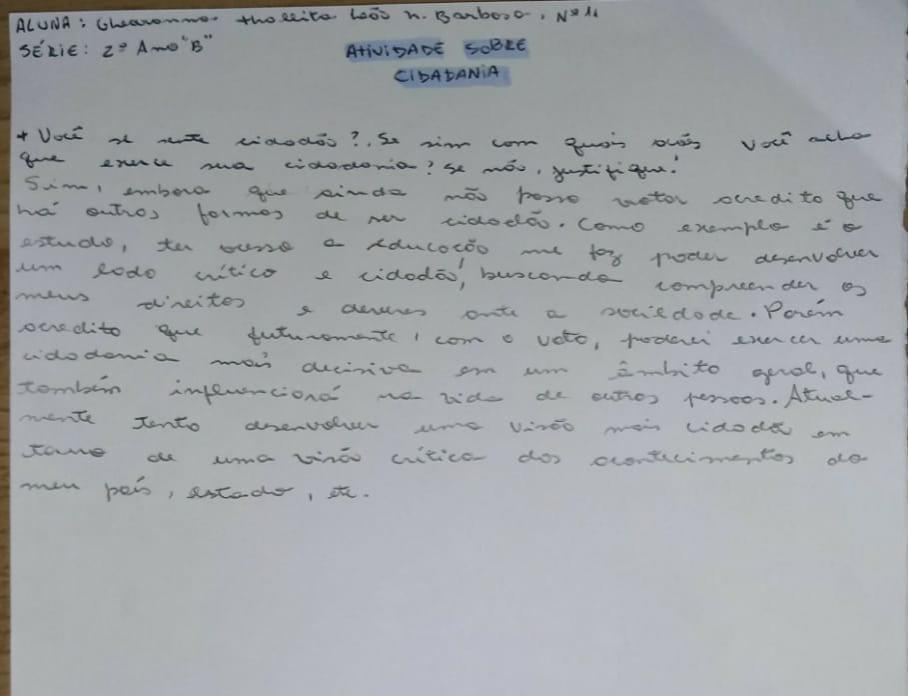 ALUNA: Ghearonna thallita Leão n. Barbosa, Nº 11
SÉRIE: 2º Ano "B"
ATIVIDADE SOBRE
CIDADANIA
* Você se sente cidadão?. Se sim com quais você acha
que exerce sua cidadania? Se não, justifique!
Sim, embora que ainda não posso votar acredito que
há outras formas de ser cidadão. Como exemplo é o
estudo, ter acesso a educação me faz poder desenvolver
um lado crítico e cidadão, buscando compreender os
meus direitos e deveres ante a sociedade. Porém
acredito que futuramente, com o voto, poderei exercer uma
cidadania mais decisiva em um âmbito geral, que
também influencioná na vida de outras pessoas. Atual-
mente tento desenvolver uma visão mais cidadã em
torno de uma visão crítica dos acontecimentos do
meu país, estado, etc.